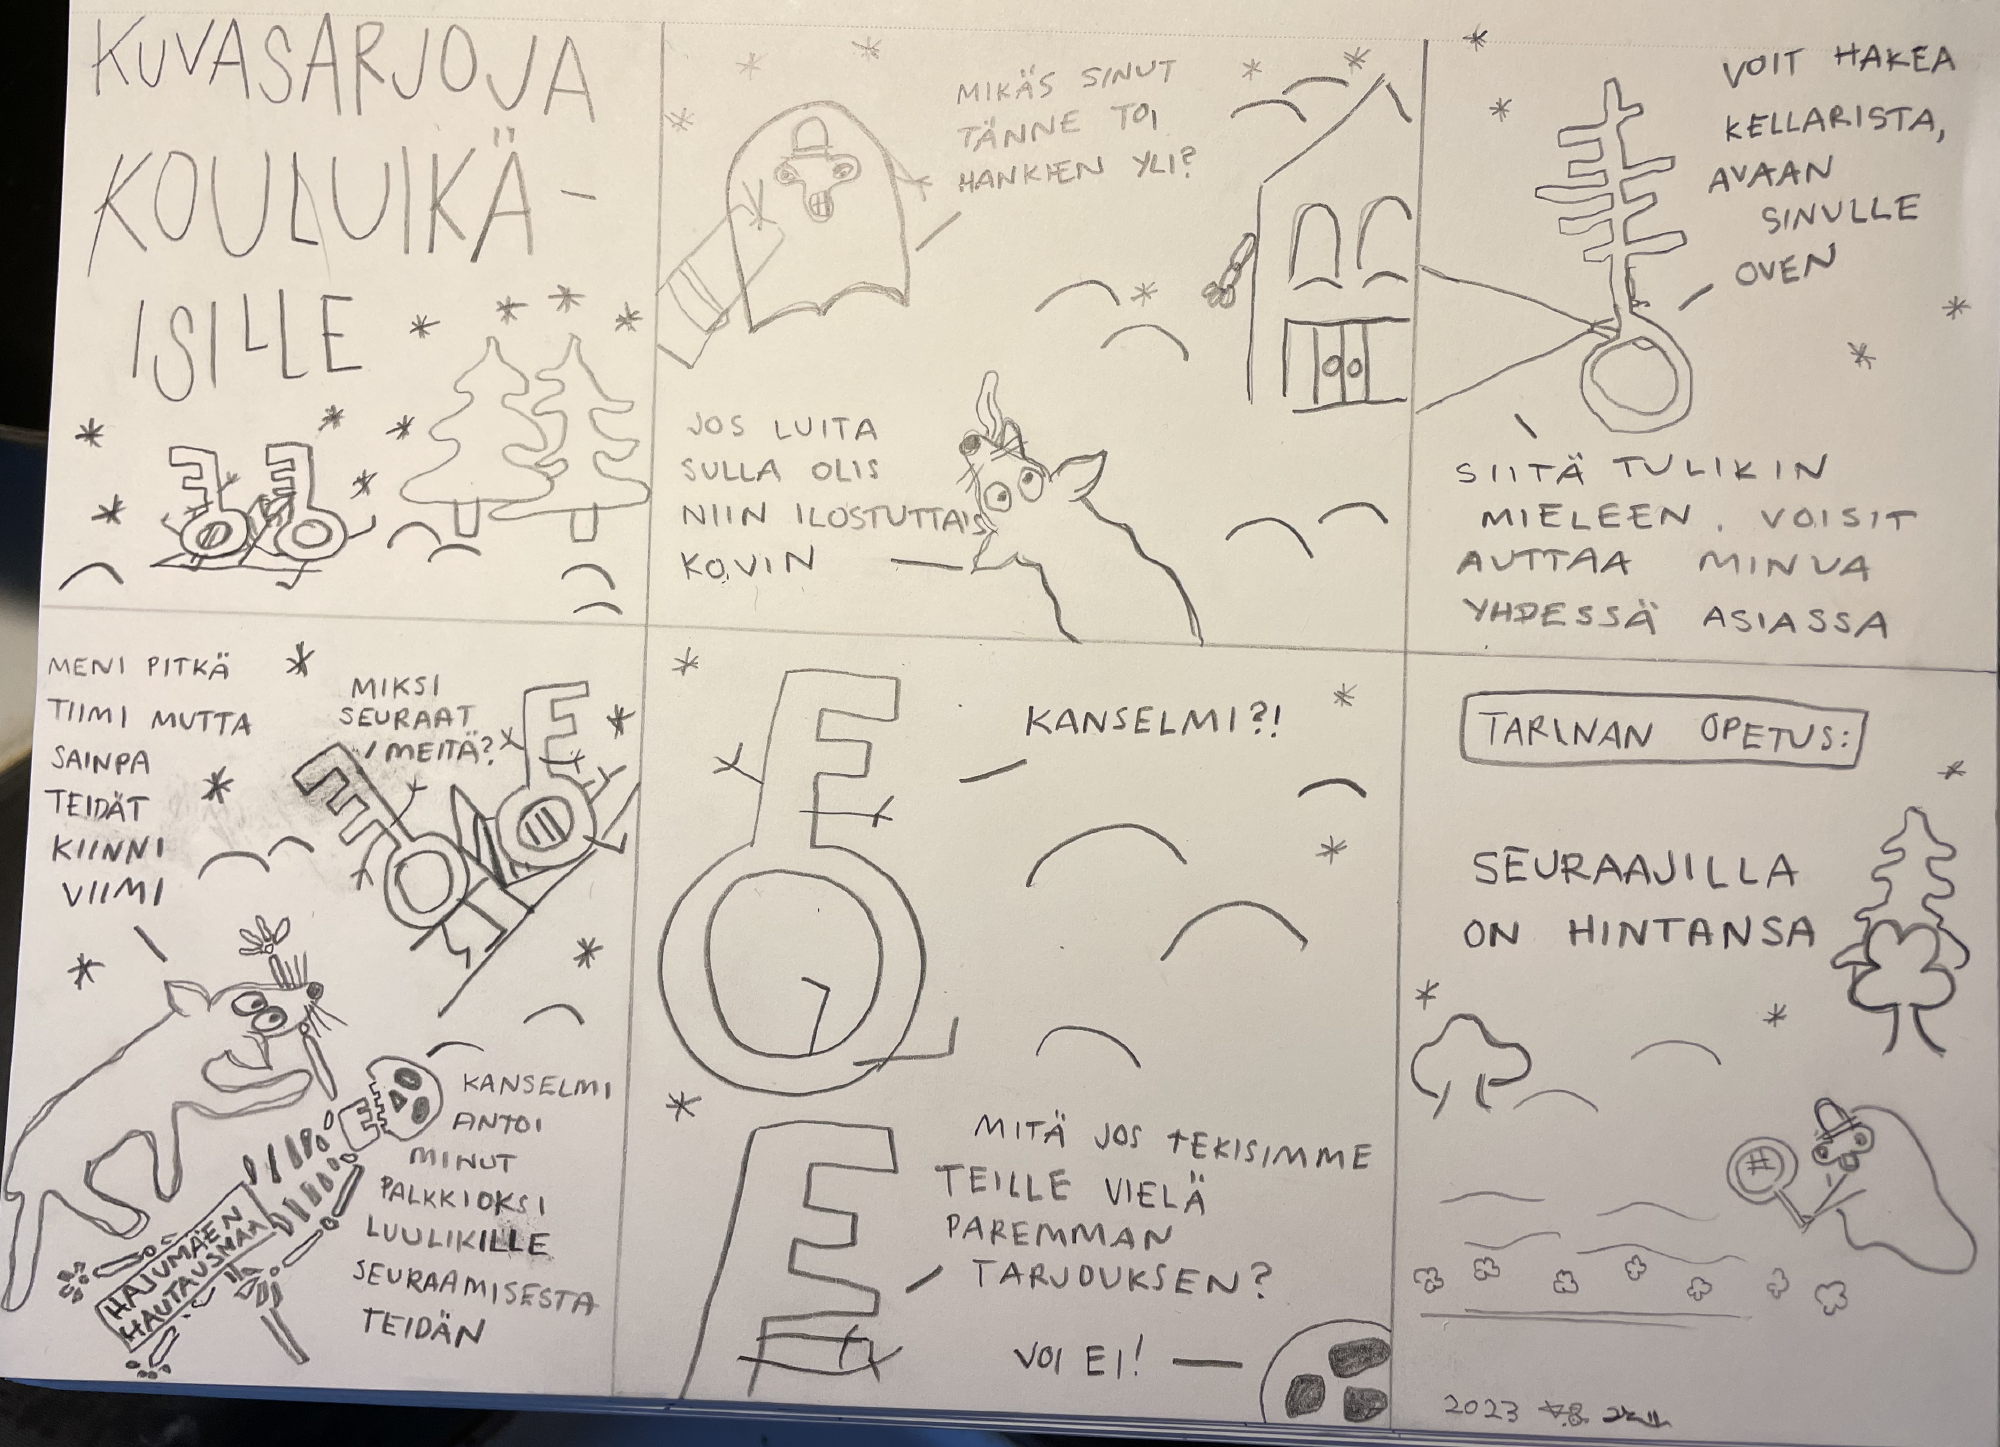 KUVASARJOJA
KOULUIKÄ-
ISILLE
MIKÄS SINUT
TÄNNE TOI
HANKIEN YLI?
JOS LUITA
SULLA OLIS
NIIN ILOSTUTTAIS
KOVIN
VOIT HAKEA
KELLARISTA,
AVAAN
SINULLE
OVEN
SIITÄ TULIKIN
MIELEEN. VOISIT
AUTTAA MINUA
YHDESSÄ ASIASSA
MENI PITKÄ
TIIMI MUTTA
SAINPA
TEIDÄT
KIINNI
VIIMI
MIKSI
SEURAAT
MEITÄ?
KANSELMI
ANTOI
MINUT
PALKKIOKSI
LUULIKILLE
SEURAAMISESTA
TEIDÄN
HAJUMÄEN
HAUTAUSMAA
KANSELMI?!
MITÄ JOS TEKISIMME
TEILLE VIELÄ
PAREMMAN
TARJOUKSEN?
VOI EI!
TARINAN OPETUS:
SEURAAJILLA
ON HINTANSA
2023